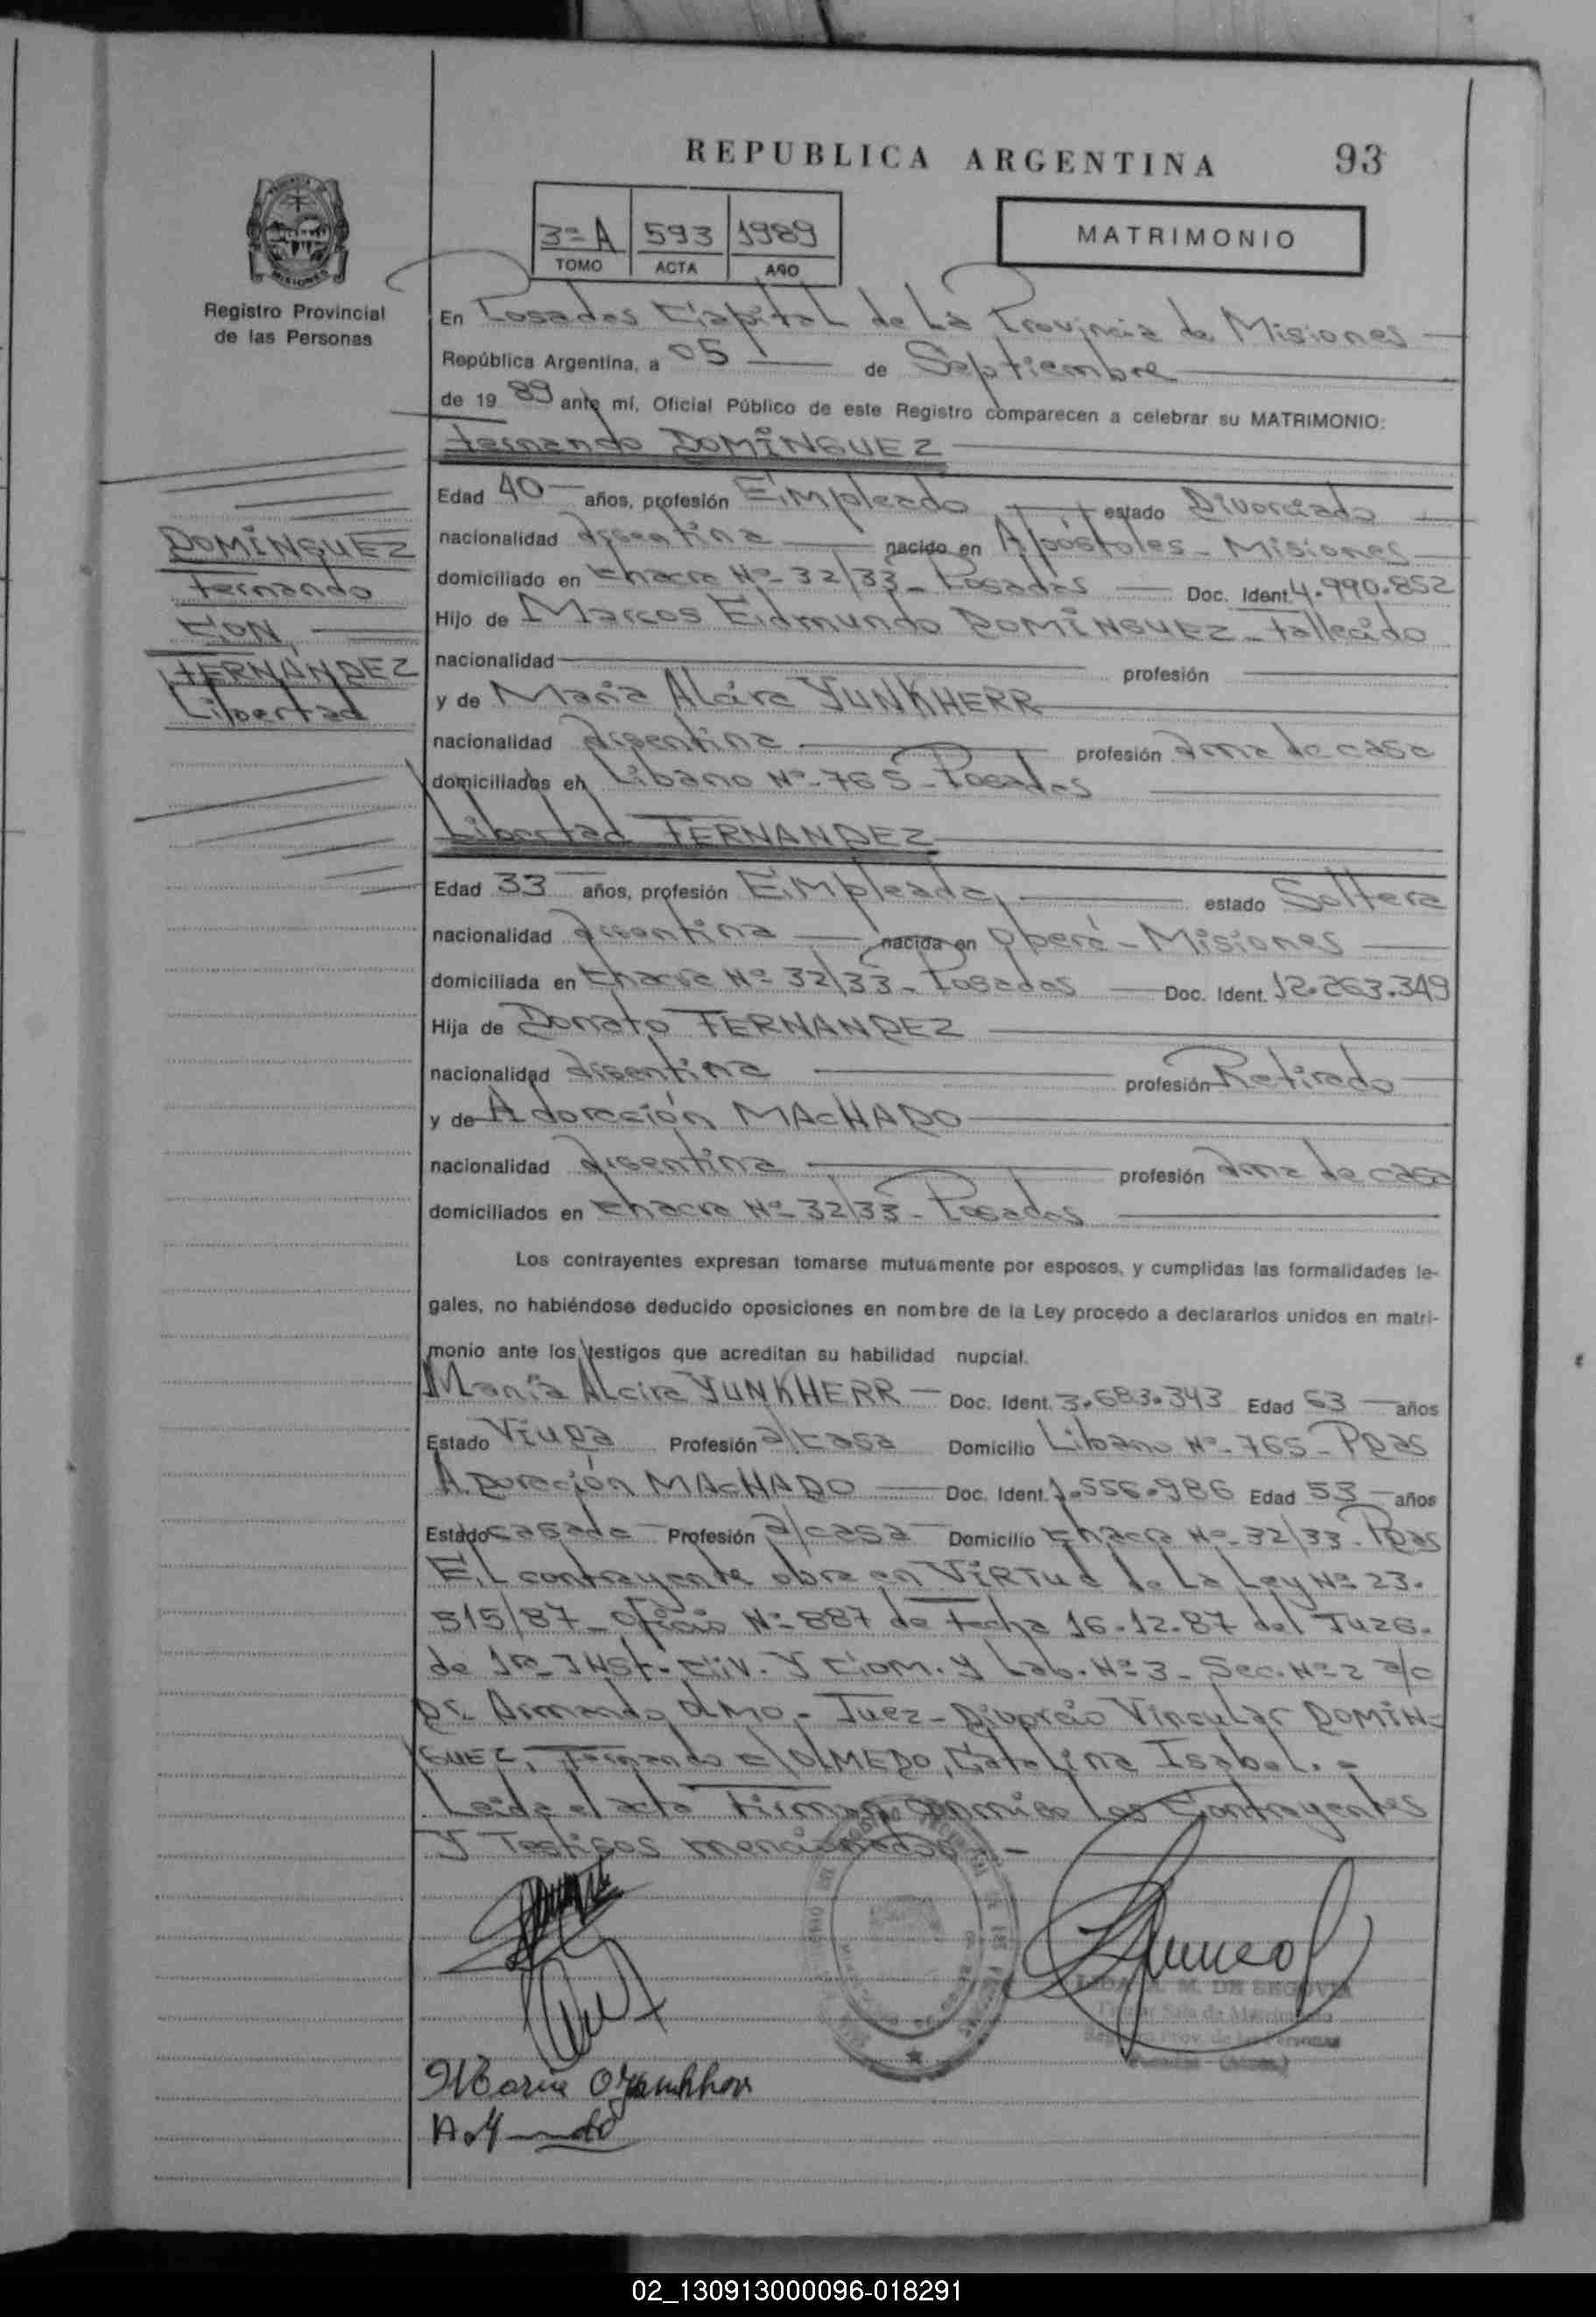 REPUBLICA ARGENTINA 93
3=A 593 1989
TOMO ACTA AÑO
MATRIMONIO
Registro Provincial
de las Personas
En Posadas Capital de La Provincia de Misiones
República Argentina, a 05 de Septiembre
de 1989 ante mí, Oficial Público de este Registro comparecen a celebrar su MATRIMONIO:
Fernando DOMINGUEZ
Edad 40 años, profesión Empleado estado Divorciado
nacionalidad Argentina nacido en Apóstoles - Misiones
domiciliado en Chacra Nº- 32/33 - Posadas Doc. Ident. 4.990.852
Hijo de Marcos Edmundo DOMINGUEZ - fallecido
nacionalidad profesión
y de María Alcira YUNKHERR
nacionalidad Argentina profesión ama de casa
domiciliados en Libano Nº- 765 - Posadas
DOMINGUEZ
Fernando
CON
FERNANDEZ
Libertad
Libertad FERNANDEZ
Edad 33 años, profesión Empleada estado Soltera
nacionalidad Argentina nacida en Oberá - Misiones
domiciliada en Chacra Nº- 32/33 - Posadas Doc. Ident. 12.263.349
Hija de Donato FERNANDEZ
nacionalidad Argentina profesión Retirado
y de Adoración MACHADO
nacionalidad Argentina profesión ama de casa
domiciliados en Chacra Nº- 32/33 - Posadas
Los contrayentes expresan tomarse mutuamente por esposos, y cumplidas las formalidades le-
gales, no habiéndose deducido oposiciones en nombre de la Ley procedo a declararlos unidos en matri-
monio ante los testigos que acreditan su habilidad nupcial.
María Alcira YUNKHERR - Doc. Ident. 3.683.343 Edad 63 años
Estado Viuda Profesión a/casa Domicilio Libano Nº- 765 - Pdas
Adoración MACHADO Doc. Ident. 1.556.986 Edad 53 años
Estado casada Profesión a/casa Domicilio Chacra Nº- 32/33 - Pdas
El contrayente obra en VIRTUd de La Ley Nº 23.
515/87 - Oficio Nº 887 de fecha 16-12-87 del Juzg.
de 1ra Inst. Civ. Y Com. y Lab. Nº 3 - Sec. Nº 2 a/c
Dr. Armando OLMO - Juez - Divorcio Vincular DOMIN=
GUEZ, Fernando c/OLMEDO, Catalina Isabel. =
Leida el acta Firman conmigo los Contrayentes
Y Testigos mencionados. -
M. DE SEGOVIA
02_130913000096-018291